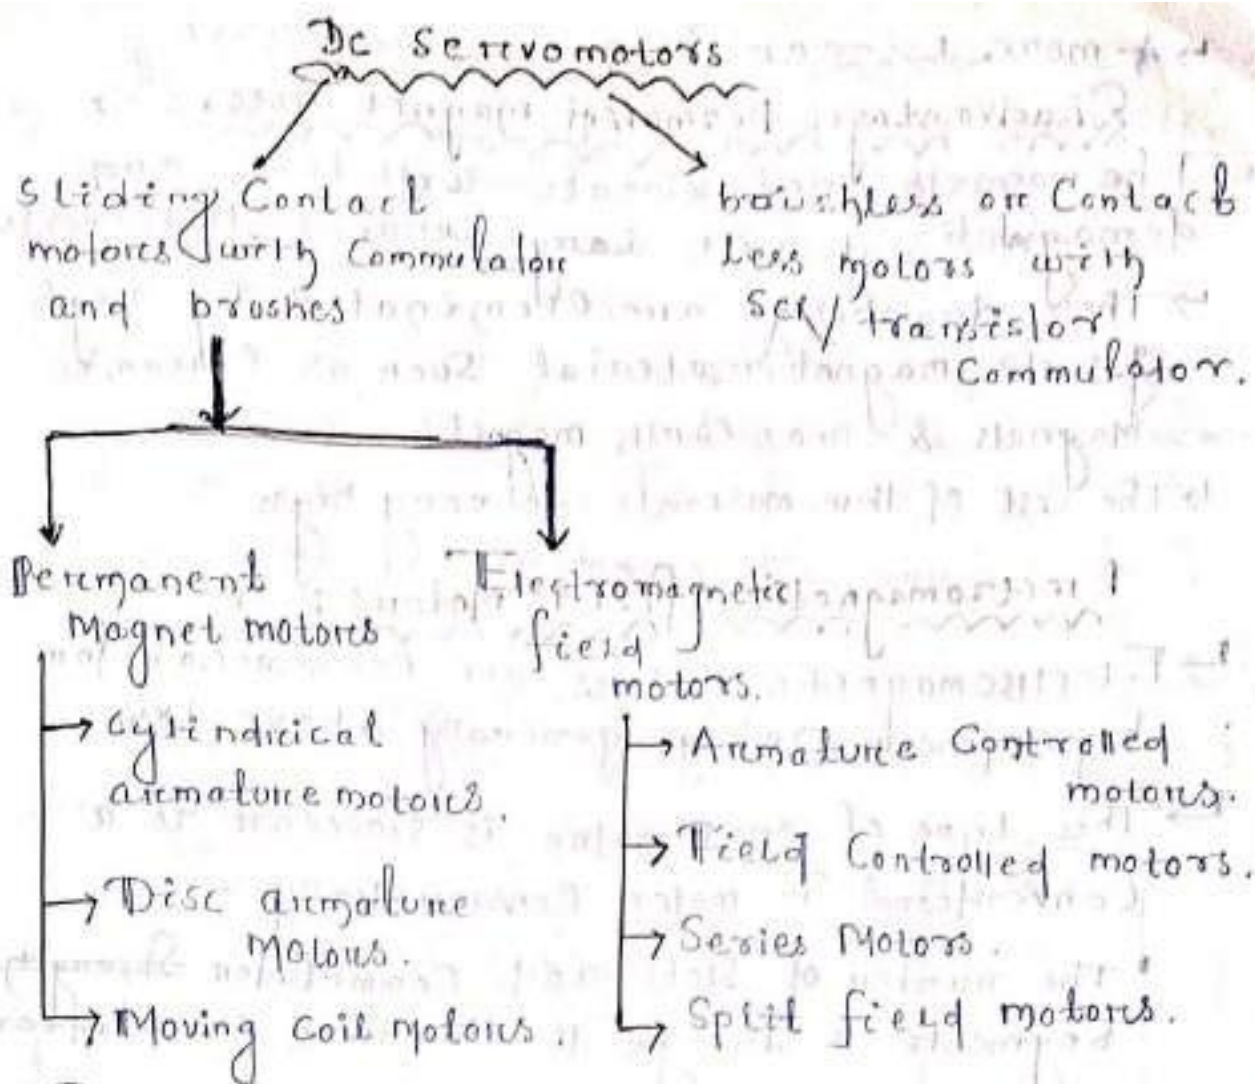 Dc Servomotors
Sliding Contact
motors with Commutator
and brushes
brushless or Contact
Less motors with
SCR/transistor
Commutator.
Permanent
Magnet motors
Cylindrical
armature motors.
Disc armature
Motors.
Moving Coil Motors.
Electromagnetic
field
motors.
Armature Controlled
motors.
Field Controlled motors.
Series Motors.
Split field motors.